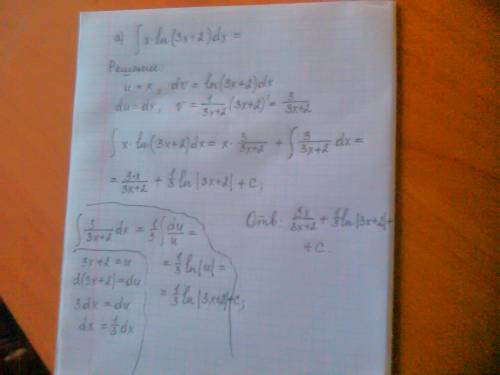 а) ∫ x·ln(3x+2)dx =
Решение:
u = x, dv = ln(3x+2)dx
du = dx, v = 1/(3x+2) · (3x+2)' = 3/(3x+2)
∫ x·ln(3x+2)dx = x · 3/(3x+2) + ∫ 3/(3x+2) dx =
= 3·x/(3x+2) + 1/3 ln|3x+2| + c;
∫ 3/(3x+2) dx = 1/3 ∫ du/u =
3x+2 = u
= 1/3 ln|u| =
d(3x+2) = du
= 1/3 ln|3x+2| + c;
3dx = du
dx = 1/3 dx
Отв: 3x/(3x+2) + 1/3 ln|3x+2| +
+ c.